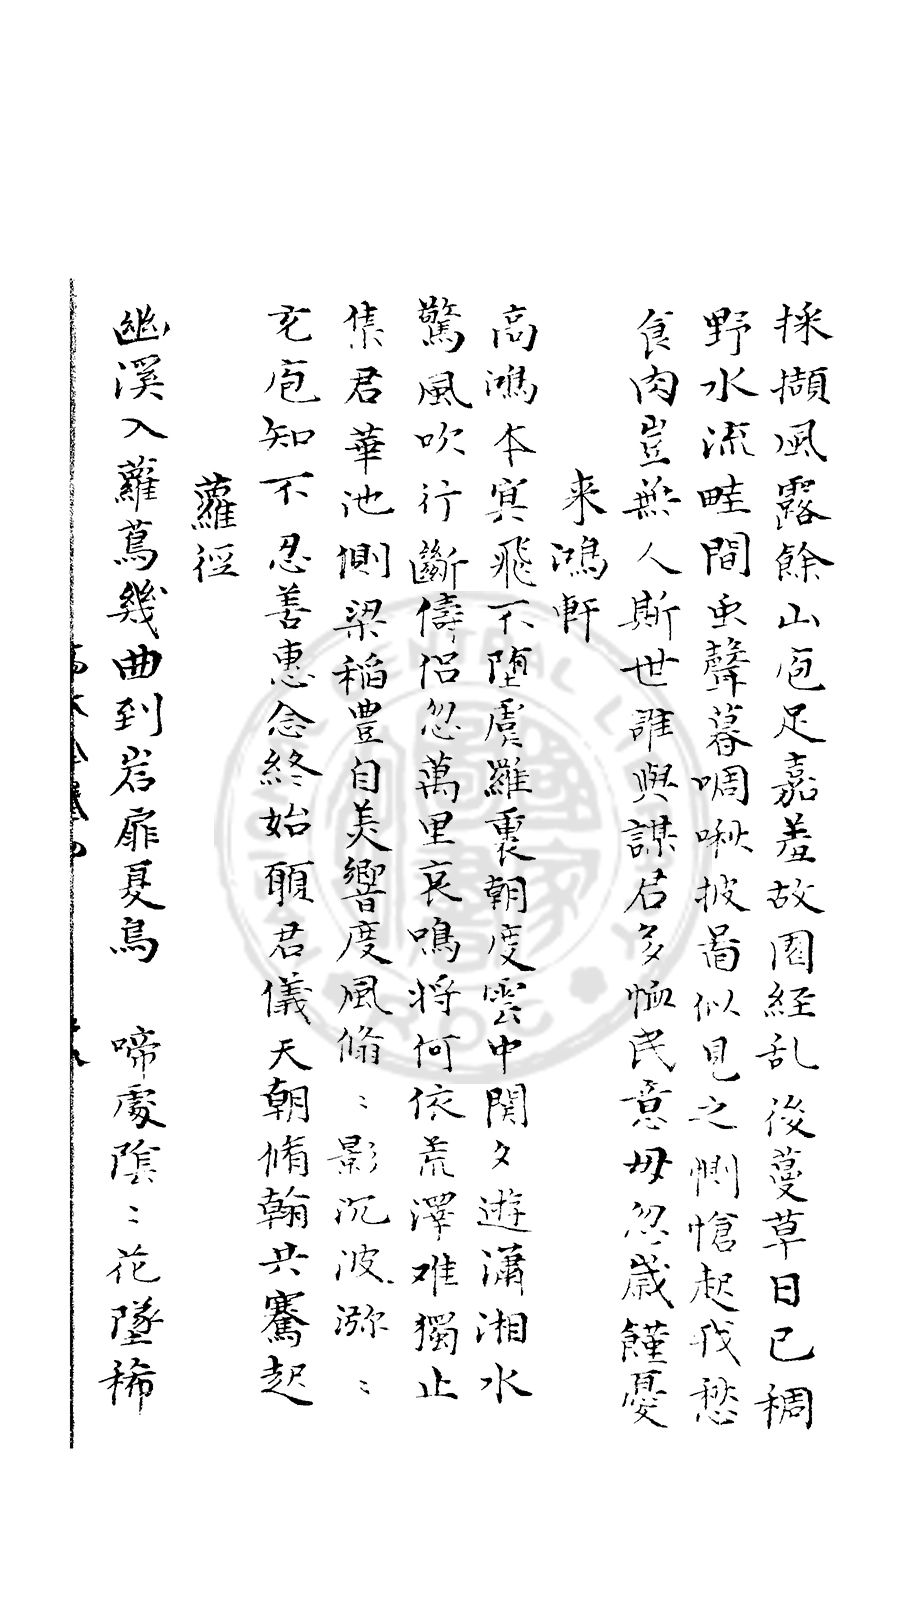 採擷風露餘山庖足嘉羞故園経乱後蔓草日已稠
野水流畦間虫聲暮啁啾披圖似見之惻愴起我愁
食肉豈無人斯世誰與謀君多恤民意毋忽歲饉憂
来鴻軒
高鴻本冥飛不堕虞羅裏朝度雲中関夕遊瀟湘水
驚風吹行斷儔侣忽萬里哀鳴将何依荒澤难獨止
集君華池側梁稻豊自美響度風翛〻影沉波瀰〻
充庖知不忍善惠念終始願君儀天朝脩翰共騫起
蘿徑
幽溪入蘿蔦幾曲到岩扉夏鳥 啼處隂〻花墜稀